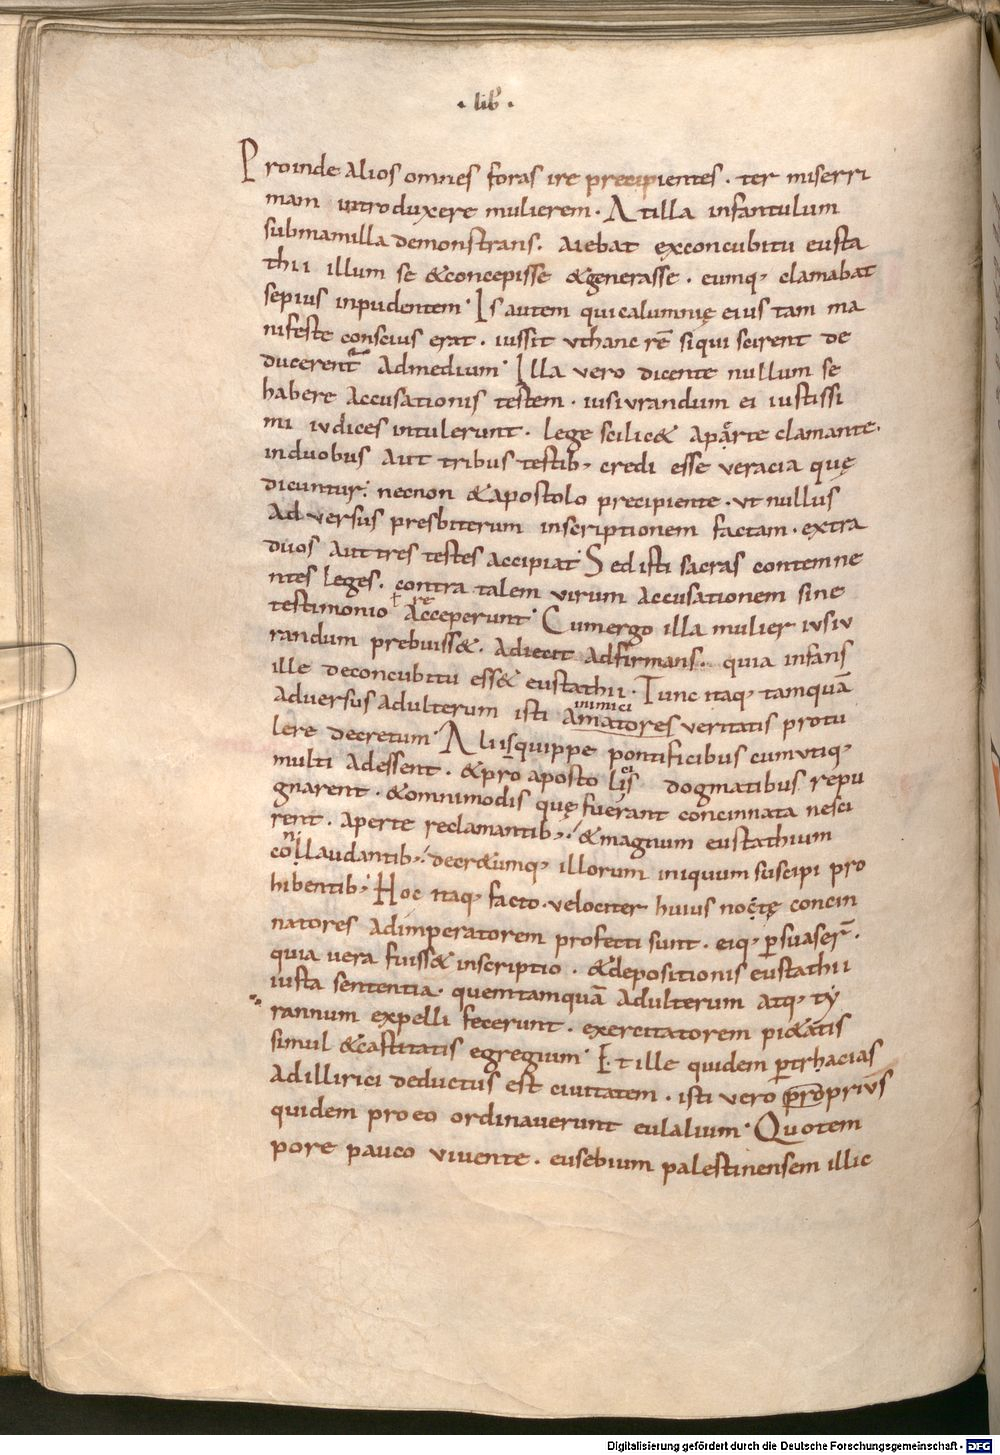 · lib̾ ·
Proinde alios omnes foras ire precipientes · ter miserri
mam introduxere mulierem · At illa infantulum
submamilla demonstrans · aiebat exconcubitu eusta
thii illum se &concepisse &generasse · eumq, clamabat
sepius inpudentem · Is autem quicalumnię eius tam ma
nifeste conscius erat · iussit uthanc rē siqui scirent de
ducerent Admedium · Illa vero dicente nullum se
habere Accusationis testem · iusiurandum ei iustissi
mi iudices intulerunt · lege scilic& aparte clamante ·
induobus Aut tribus testib, credi esse veracia quę
dicuntur · necnon &apostolo precipiente · ut nullus
Adversus presbiterum inscriptionem factam · extra
duos Aut tres testes accipiat · Sed isti sacras contemne
ntes leges · contra talem virum Accusationem sine
testimonio Acceperunt · Cumergo illa mulier iusiu
randum prebuiss& · Adiecit Adfirmans · quia infans
ille deconcubitu ess& eustathii · Tunc itaq, tamquā
Adversus Adulterum isti amatores veritatis protu
inimici
lere decretum · Aliisquippe pontificibus cumutiq,
multi Adessent · &pro aposto lis dogmatibus repu
gnarent · &omnimodis quę fuerant concinnata nesci
rent · Aperte reclamantib, · &magnum eustathium
collaudantib, · decr&umq, illorum iniquum suscipi pro
hibentib, · Hoc itaq, facto · velociter huius noctę concin
natores Adimperatorem profecti sunt · eiq, p̄suaser̄ ·
quia vera fuiss& inscriptio · &depositionis eustathii
iusta sententia · quemtamquā Adulterum atq, ty
rannum expelli fecerunt · exercitatorem pi&atis
simul &castitatis egregium · Et ille quidem p̄trhacias
Adillirici deductus est civitatem · isti vero pro proprius
quidem proeo ordinaverunt eulalium · Quotem
pore pauco vivente · eusebium palestinensem illic
Digitalisierung gefördert durch die Deutsche Forschungsgemeinschaft - DFG